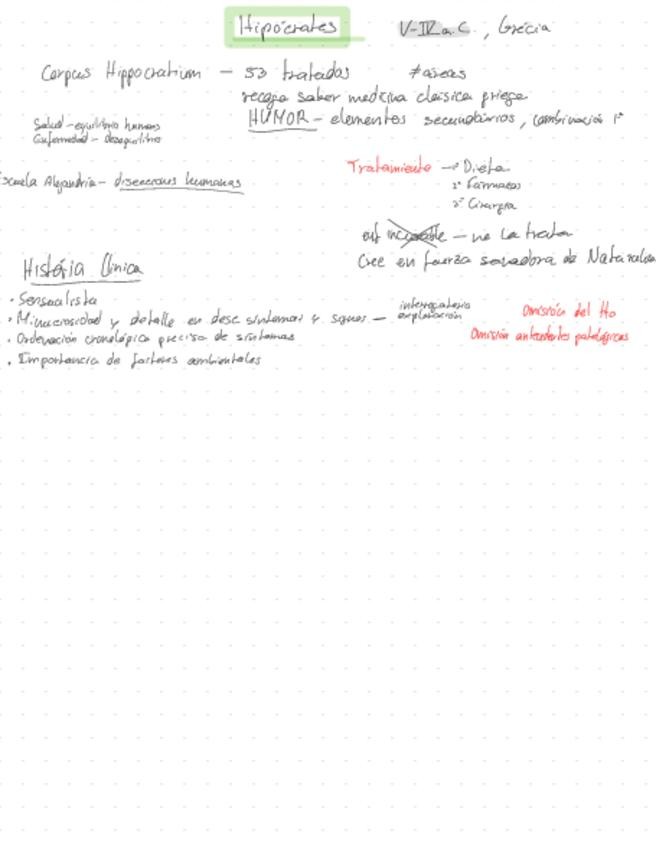 Hipócrates V-IV a.C, Grécia
Corpus Hippocratium - 53 tratados ≠ áreas
recoge saber medicina clásica griega
HUMOR - elementos secundarios, combinación 1º
Salud - equilibrio humores
Enfermedad - desequilibrio
Escuela Alejandría - disecciones humanas
Tratamiento → Dieta
2º Fármacos
3º Cirugía
enf incurable - no la trata
Cree en fuerza sanadora de Naturaleza
História Clínica
· Sensualista
· Minuciosidad y detalle en desc síntomas y signos - interrogatorio
exploración
· Ordenación cronológica precisa de síntomas
· Importancia de factores ambientales
Omisión del tto
Omisión antecedentes patológicos